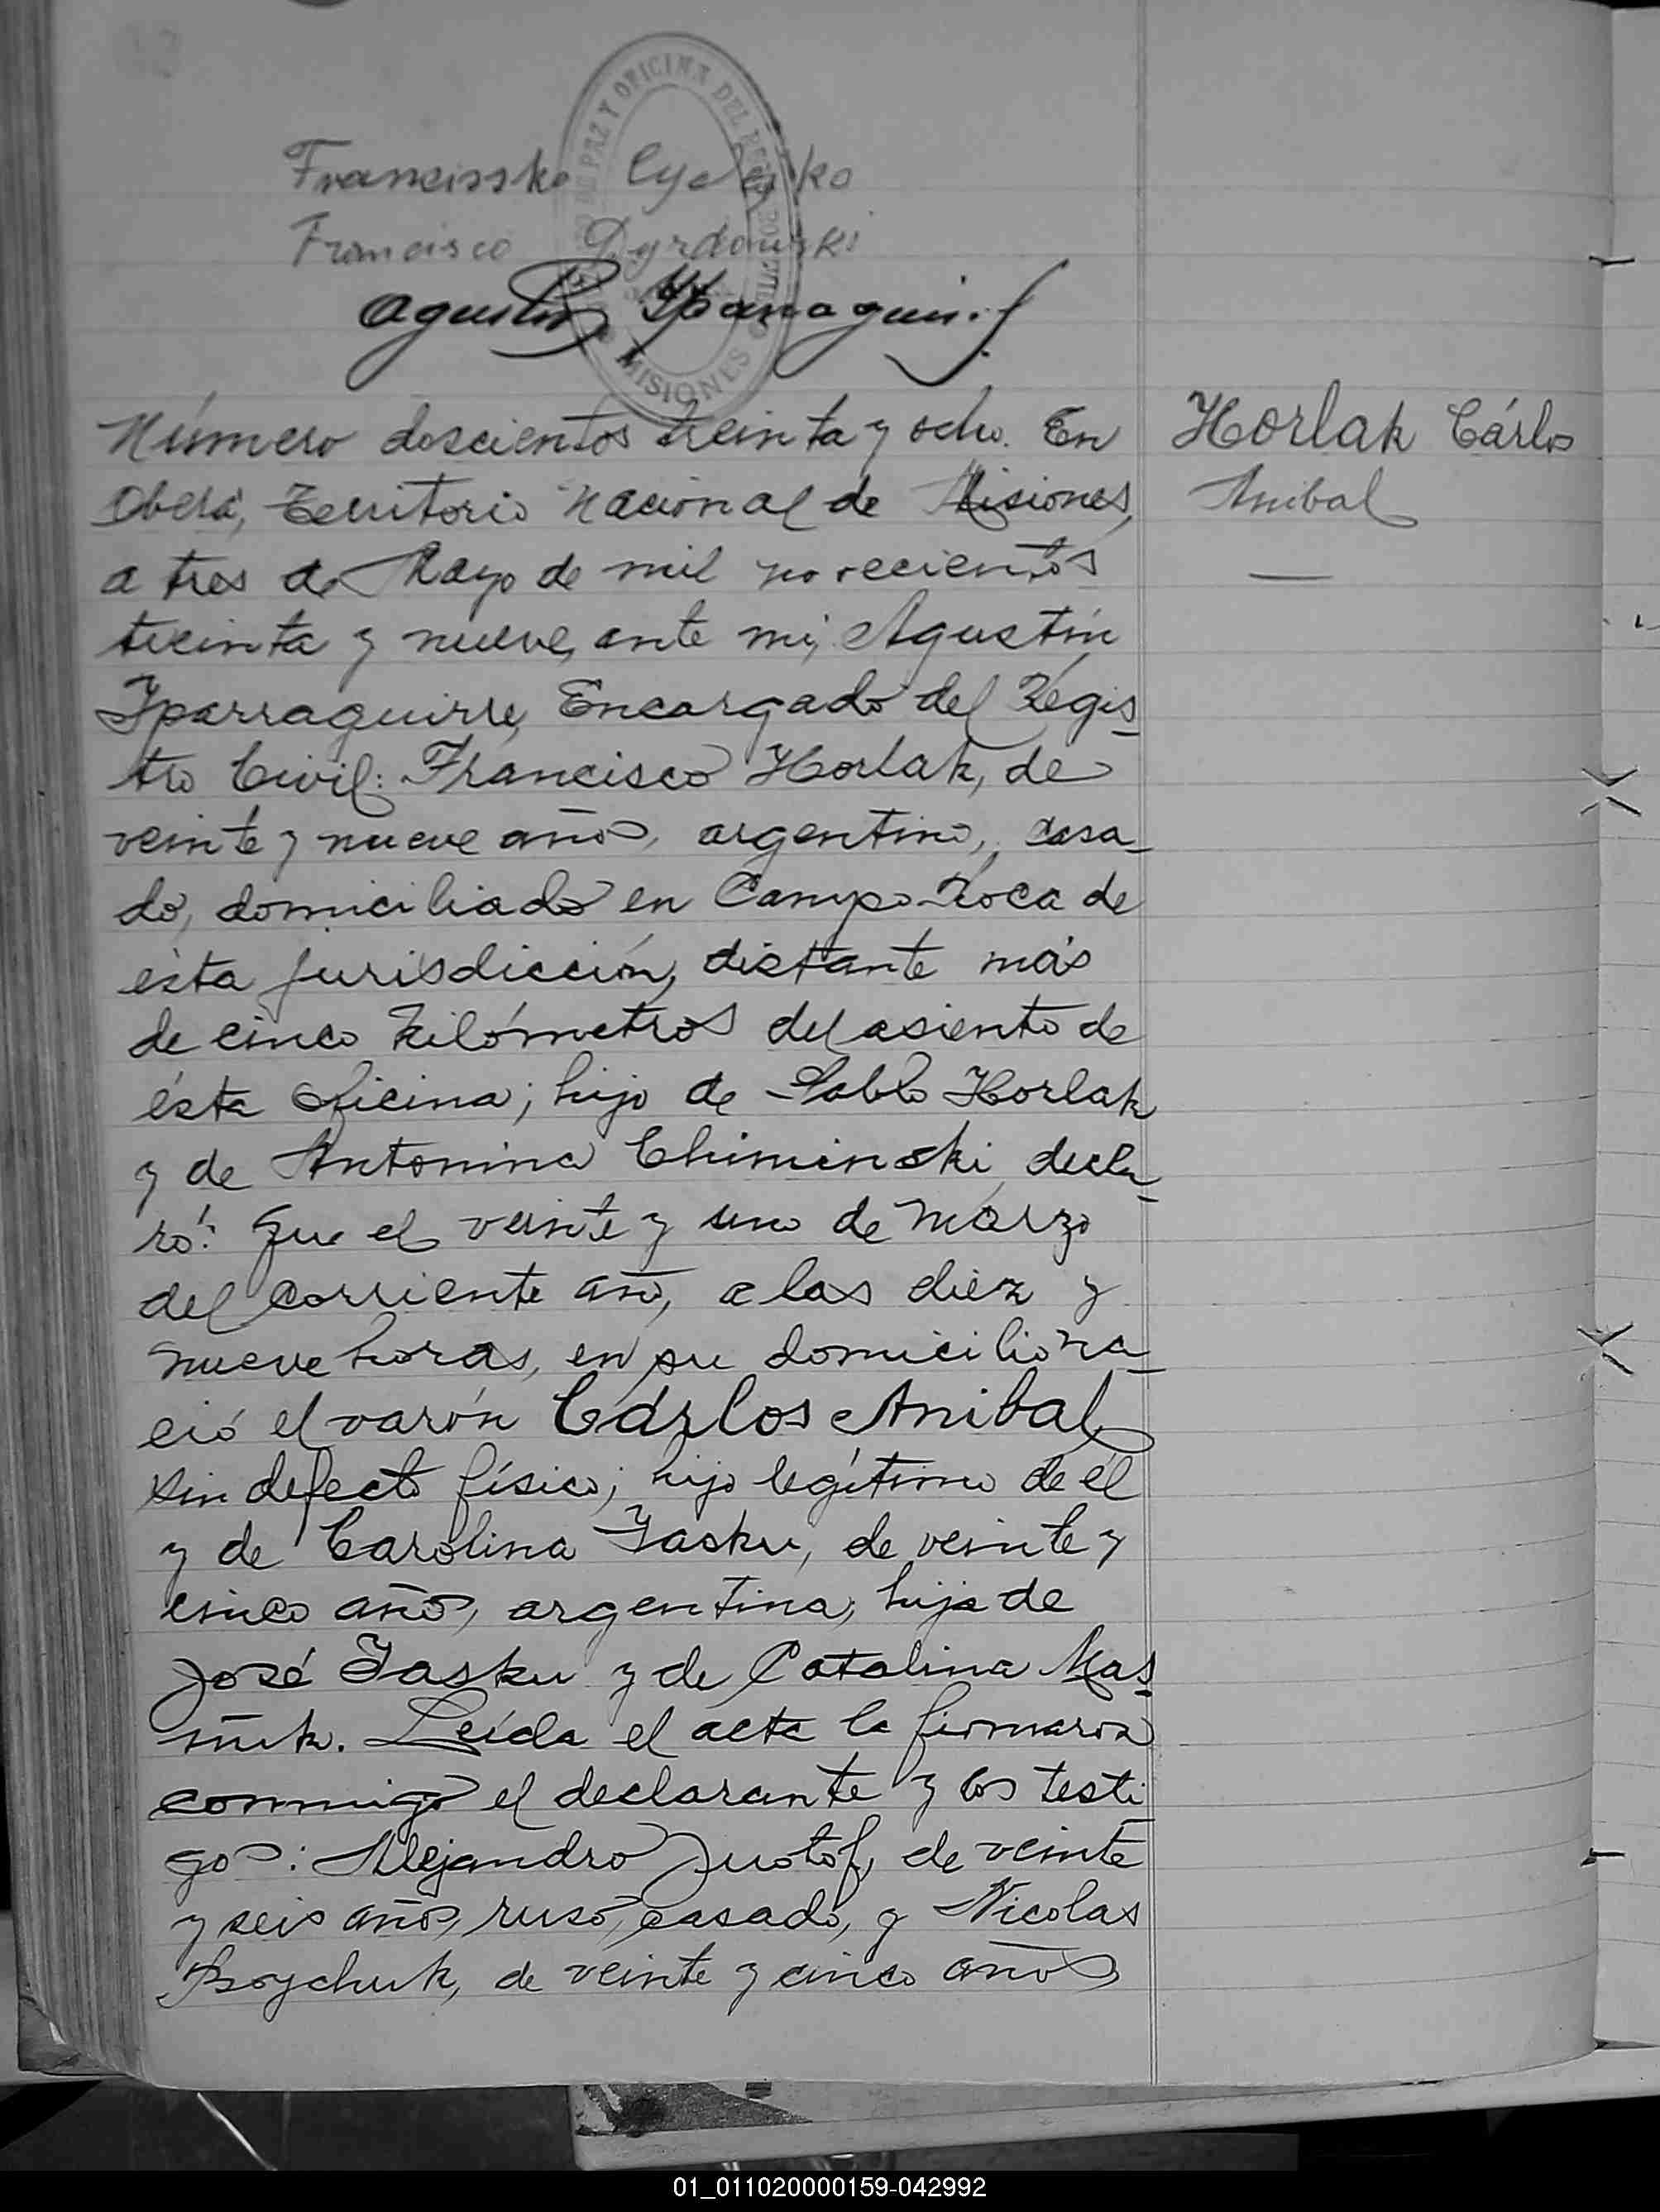 Francissko
Francisco Dyrdowski
Agustín Yparraguirre
JUZGADO DE PAZ Y OFICINA DEL REGISTRO CIVIL
MISIONES
Horlak Cárlos
Anibal
Número doscientos treinta y ocho. En
Oberá, Territorio Nacional de Misiones,
a tres de Mayo de mil novecientos
treinta y nueve, ante mí, Agustín
Yparraguirre, Encargado del Régis-
tro Civil: Francisco Horlak, de
veinte y nueve años, argentino, casa-
do, domiciliado en Campo Roca de
ésta jurisdicción, distante más
de cinco kilómetros del asiento de
ésta oficina; hijo de Pablo Horlak
y de Antonina Chiminski, decla-
ró: Que el veinte y uno de marzo
del corriente año, a las diez y
nueve horas, en su domicilio na-
ció el varón Cárlos Anibal,
sin defecto físico; hijo legítimo de él
y de Carolina Yasku, de veinte y
cinco años, argentina, hija de
José Yasku y de Catalina Mas-
ñuk. Leída el acta la firmaron
conmigo el declarante y los testi-
gos: Alejandro Justof, de veinte
y seis años, ruso, casado, y Nicolas
Boychuk, de veinte y cinco años
01_011020000159-042992